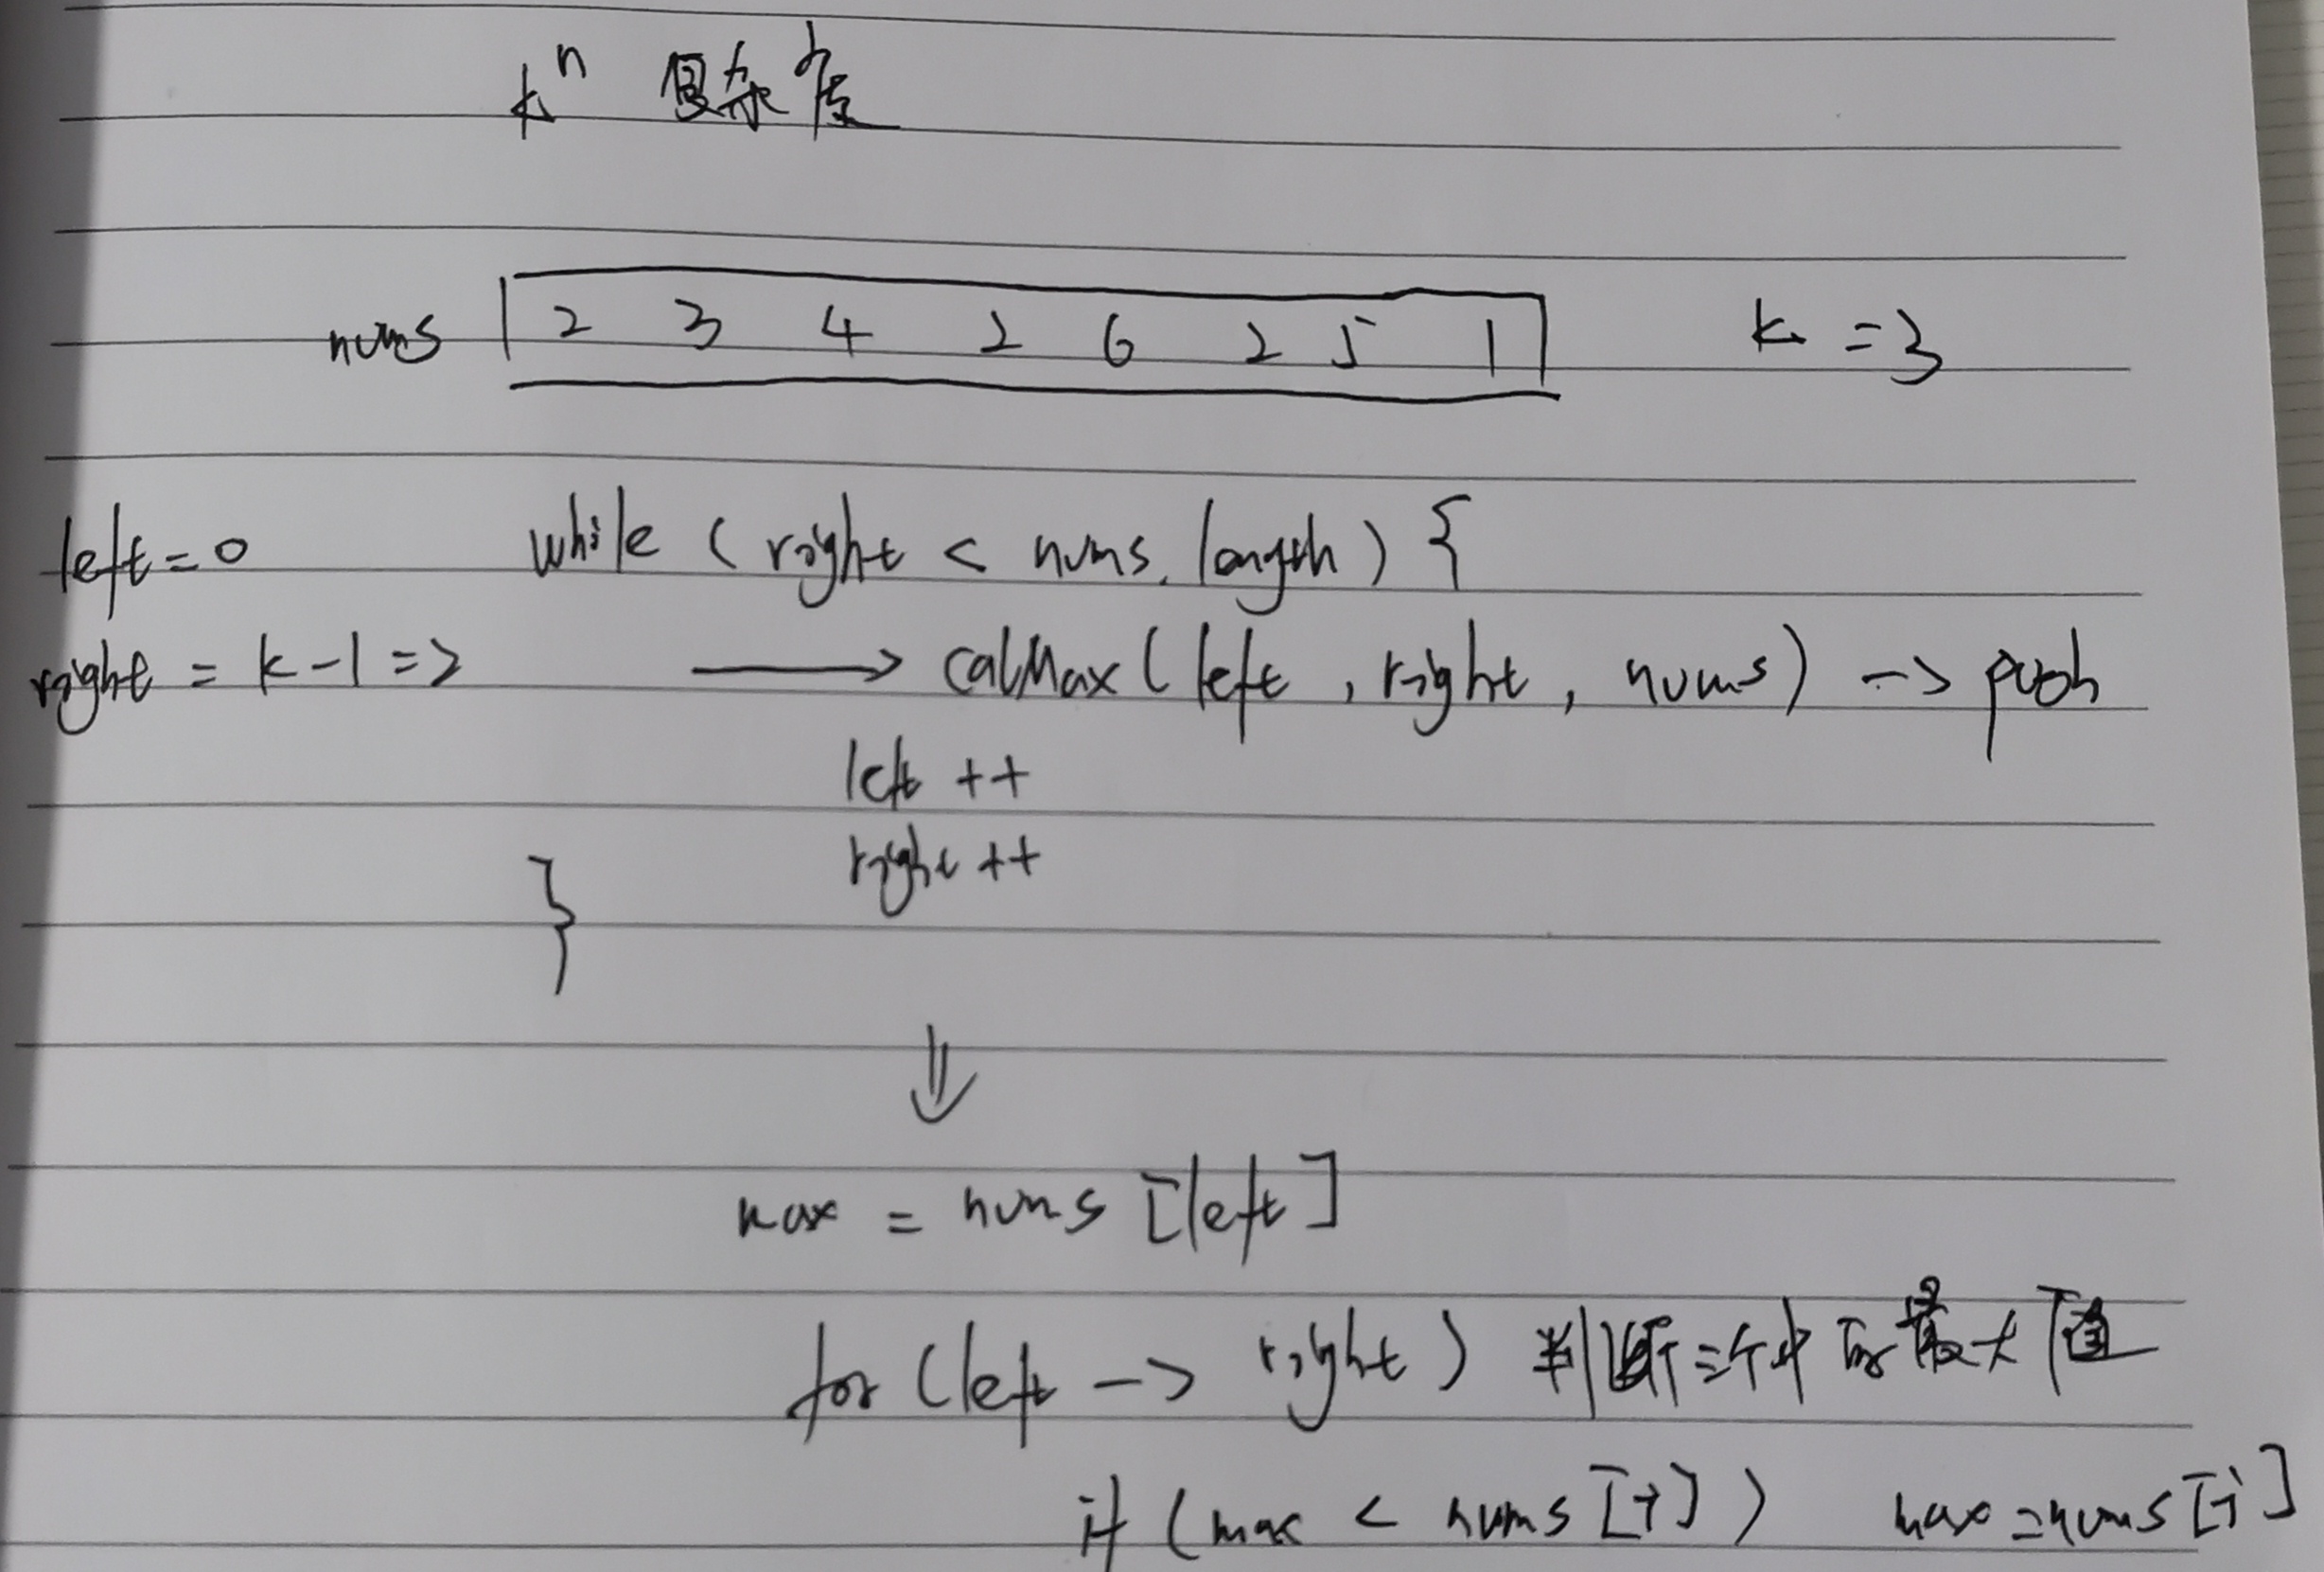 k^n 复杂度
nums 2 3 4 2 6 2 5 1 k = 3
left = 0 while ( right < nums.length ) {
right = k - 1 => 2 → calMax ( left , right , nums ) -> push
left ++
right ++
}
⇓
max = nums [left]
for (left -> right ) 判断三个中的最大值
if ( max < nums [i] ) max = nums [i]